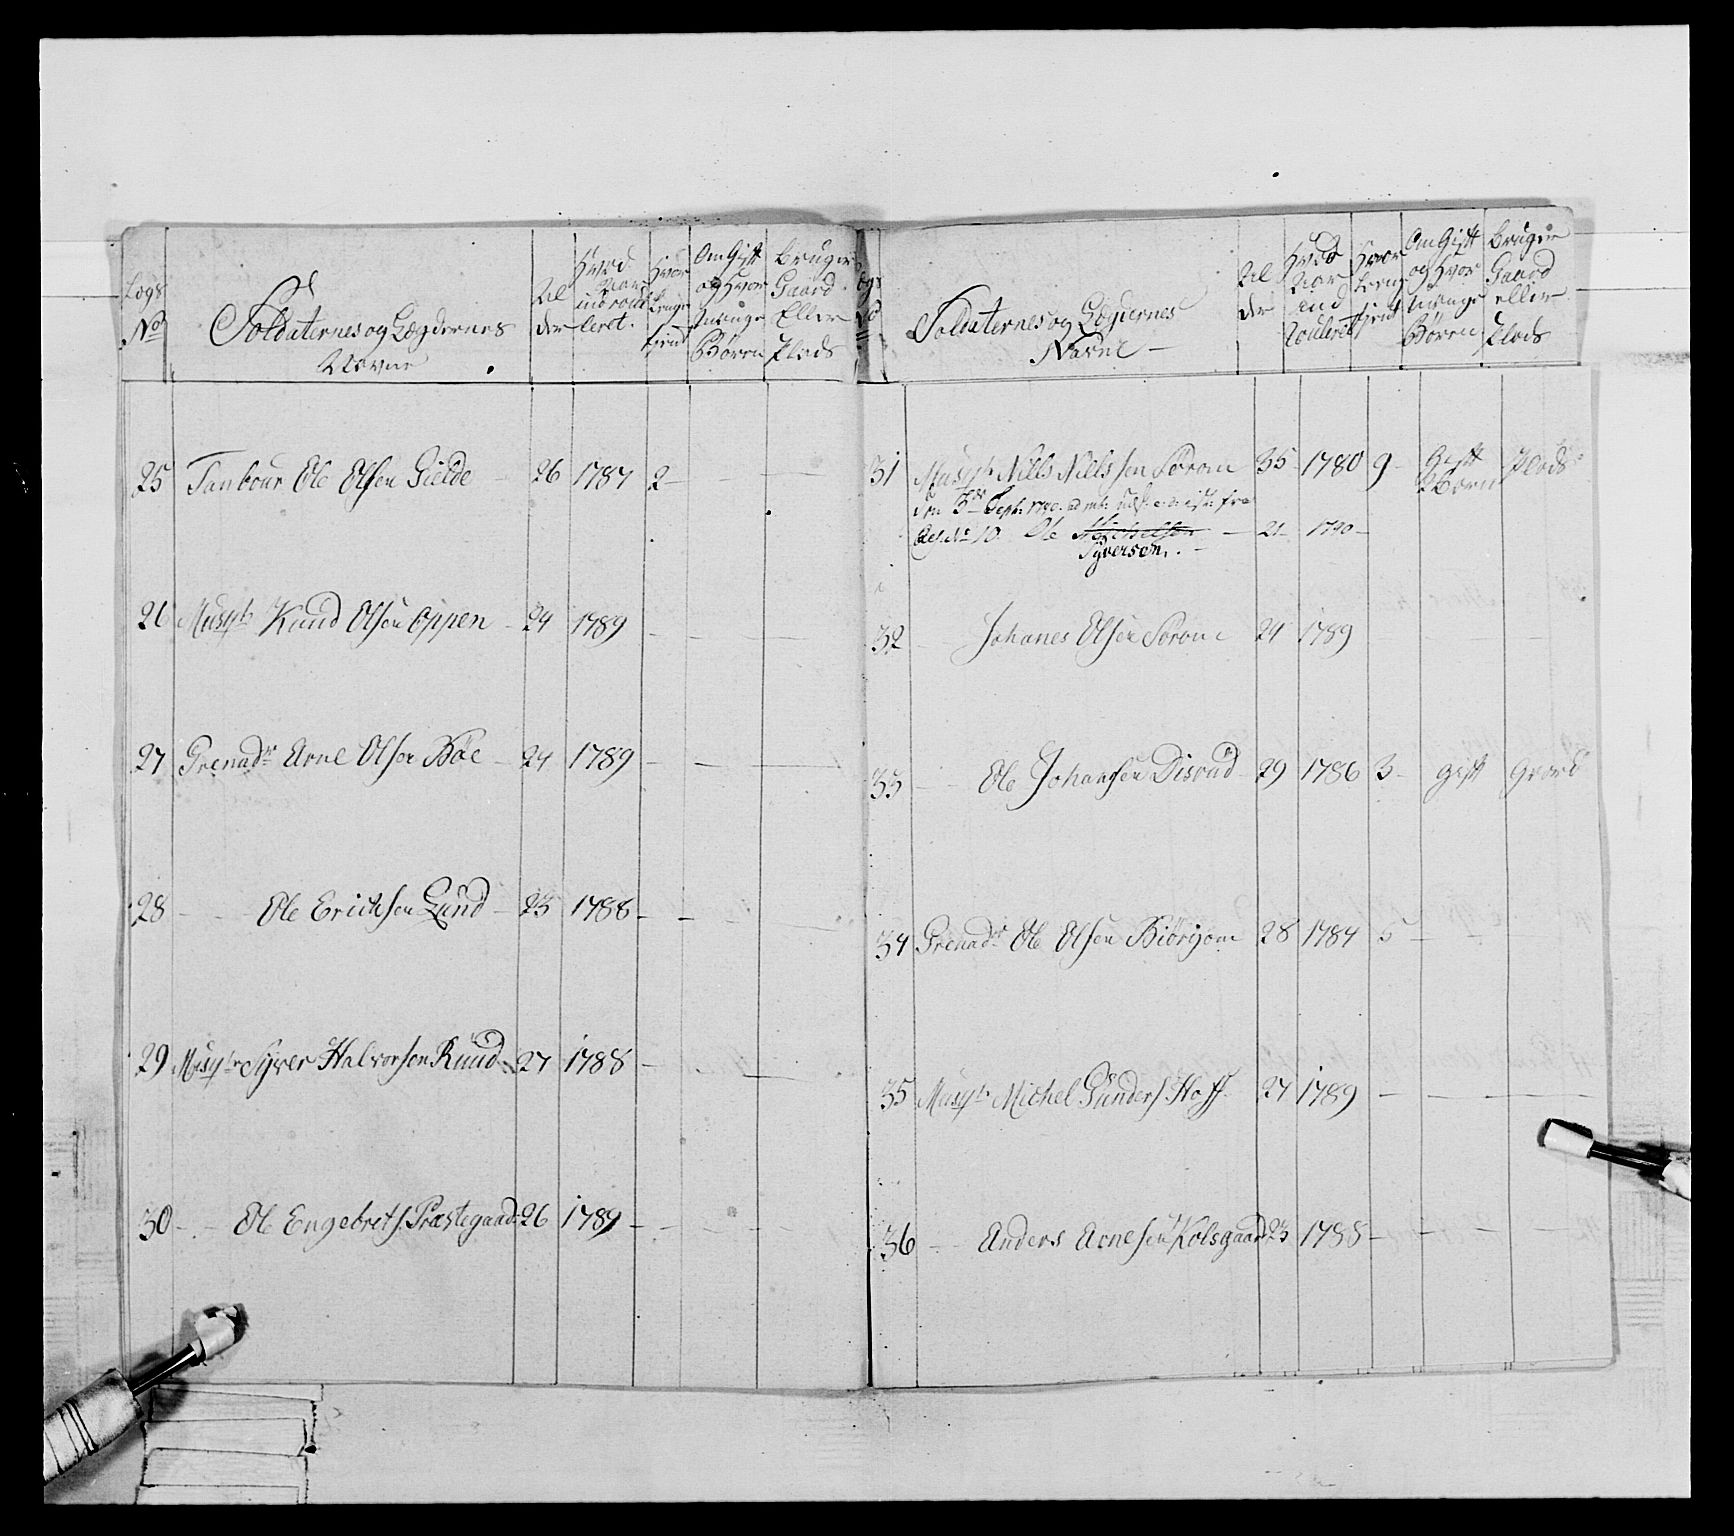 Legs
No
Soldaternes og Lægdernes
Navne
Al
der
Hvad
Aar
ind roul
leret.
Hvor
lenge
tjent
Om Gift
og Hvor
mange
Børen
Bruger
Gaard
Eller
Plads
25 Tanbour Ole Olsen Gielde 26 1787 2
26 Musqtr Knud Olsen Oppen 24 1789
27 Grenadr Arne Olsen Bøe 24 1789
28 Ole Ericksen Lund 23 1788
29 Musqtr Syver Halvorsen Ruud 27 1788
30 Ole Engebrets. Præstegaard 26 1789
Soldaternes og Lægdernes
Navne
Al
der
Hvad
Aar
ind
roulleret
Hvor
leng
tjent
Om Gift
og Hvor
mange
Børen
Bruger
Gaard
eller
Plads
31 Musqtr Nills Nills sen Sørom 35 1780 9 Gift 2 Børn Plads
den 3de Septr 1790 fra
Leg. No 10. Ole Michelsen 21 1790
Syversen.
32 Johanes Olsen Sørom 24 1789
33 Ole Johansen Disrud 29 1786 3 gift Gaard
34 Grenadr Ole Olsen Biørgom 28 1784 5
35 Musqtr Michel Gunders. Hoff 27 1789
36 Anders Arnesen Kolsgaard 23 1788